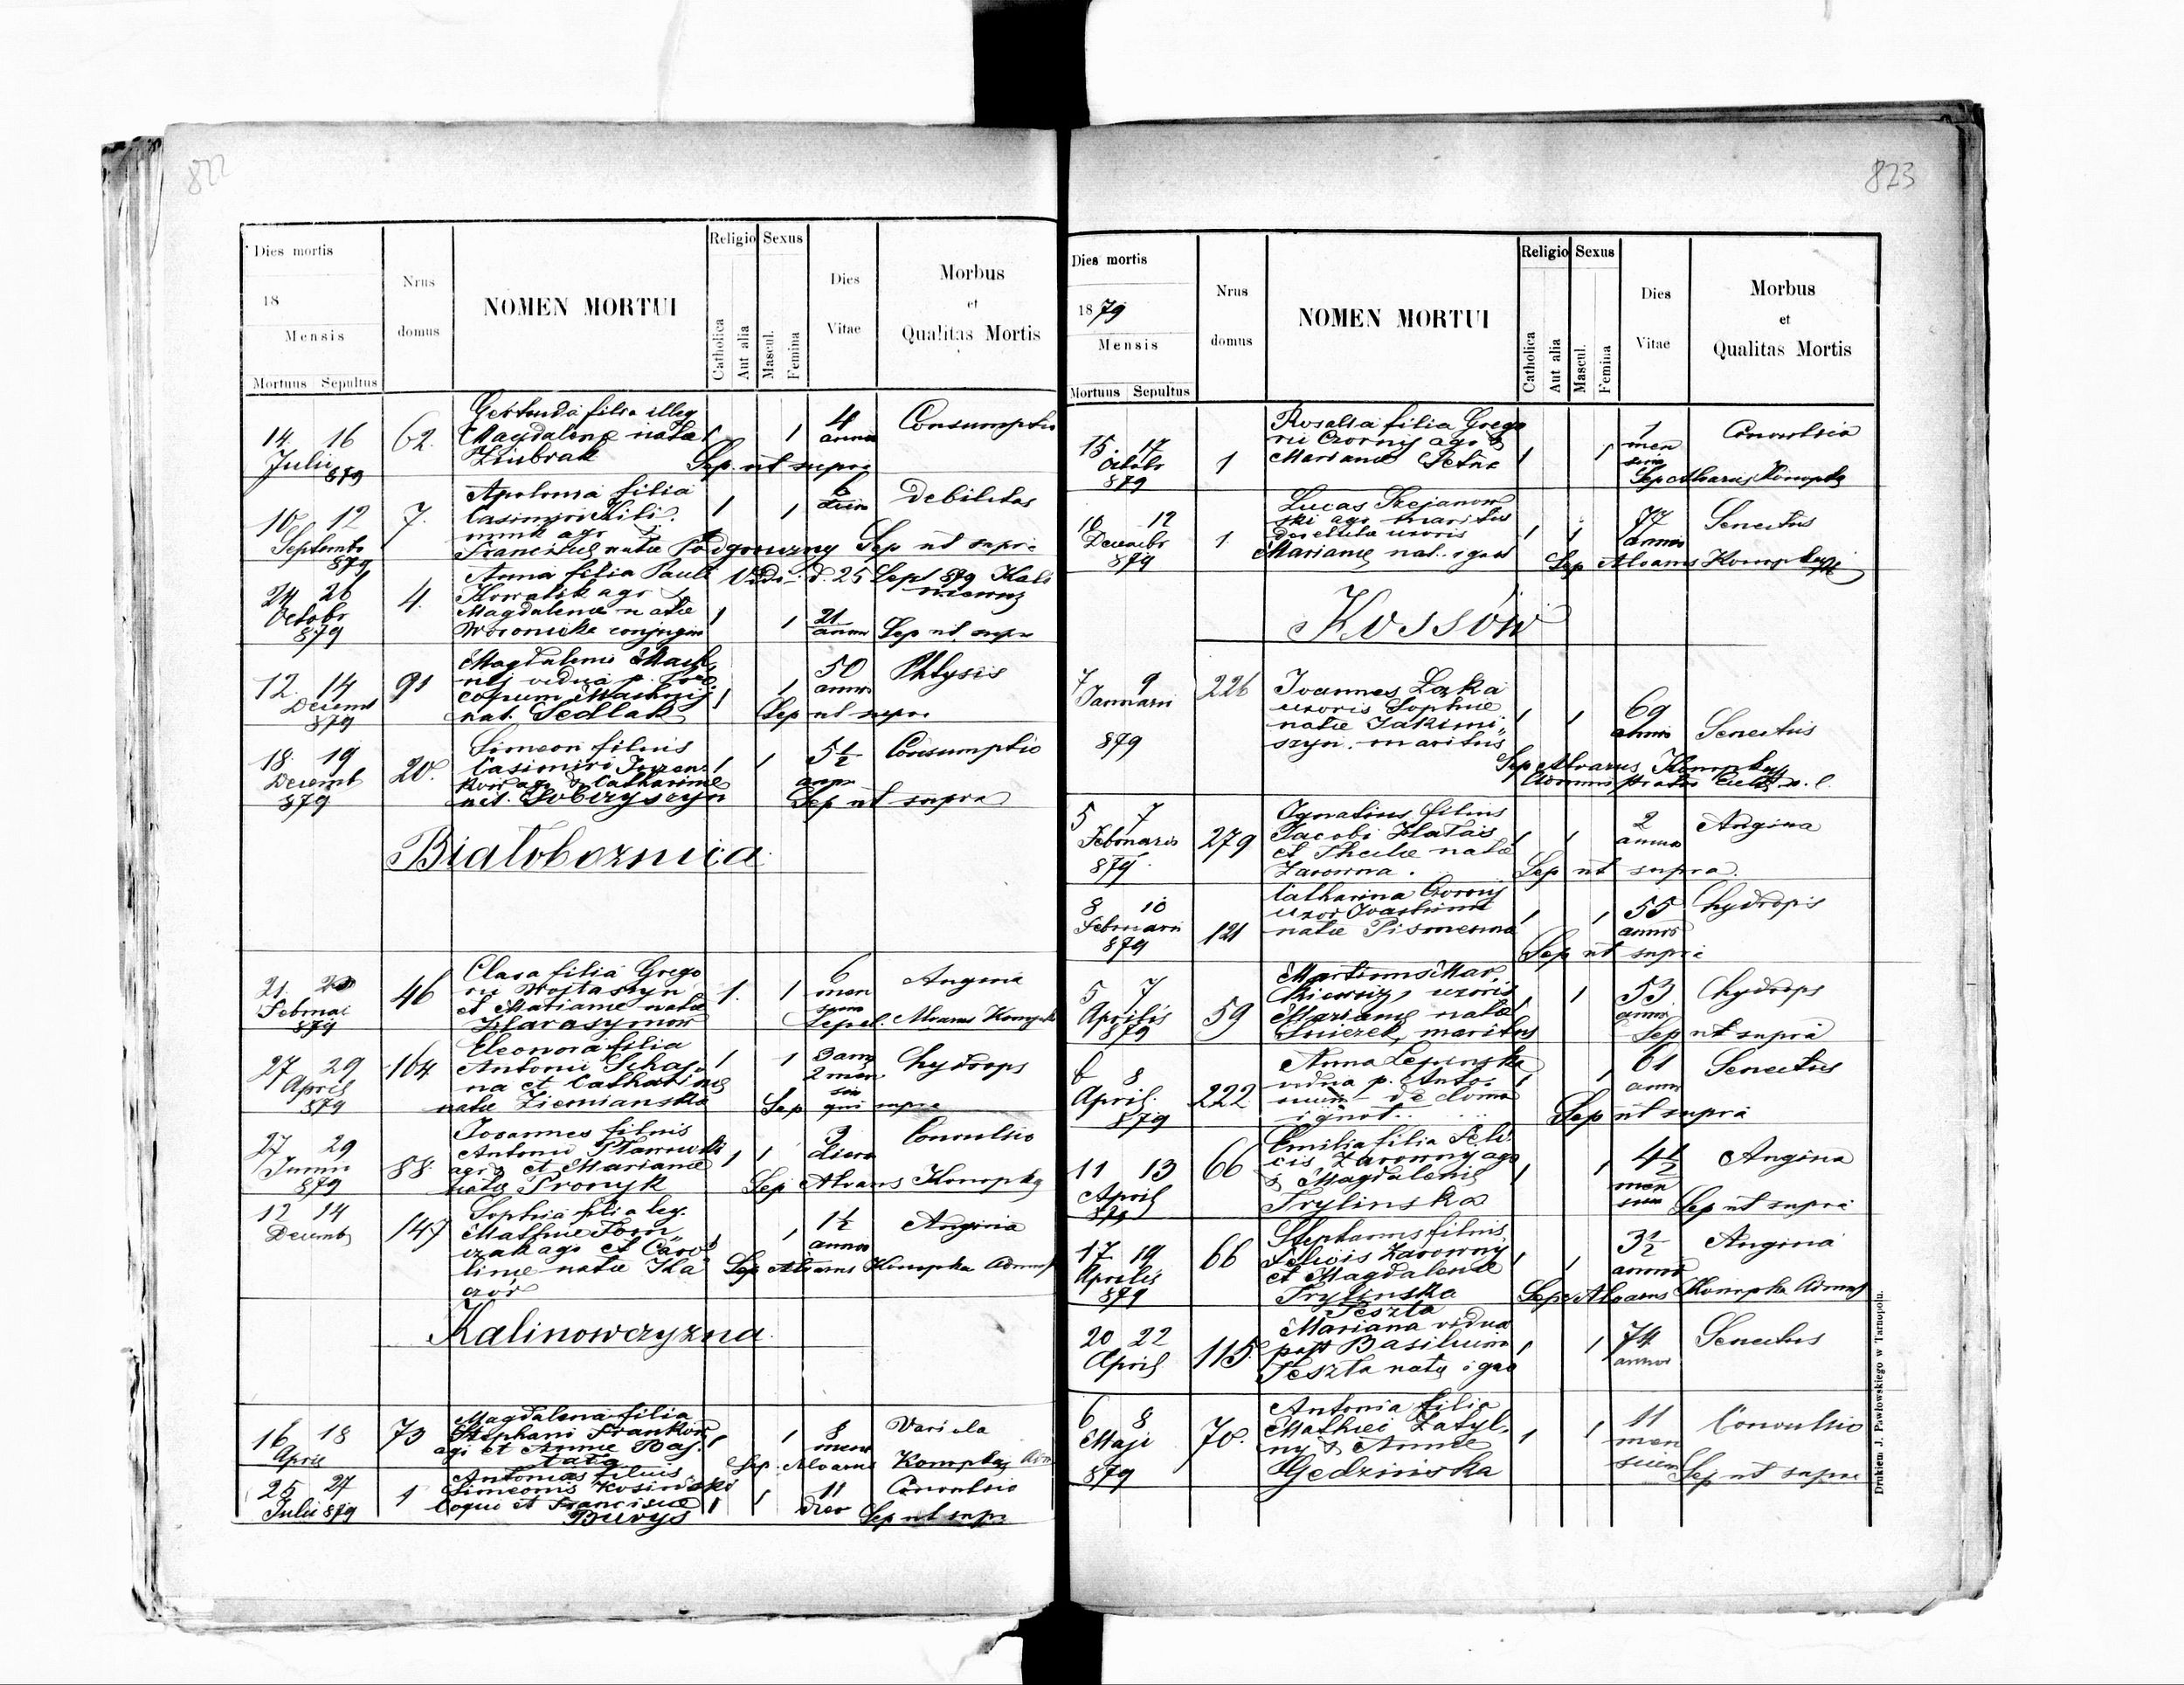 822
Dies mortis
18
Mensis
Mortuus Sepultus
Nrus
domus
NOMEN MORTUI
Religio
Catholica
Aut alia
Sexus
Mascul.
Femina
Dies
Vitae
Morbus
et
Qualitas Mortis
14 16
Julii
879
62.
filia illeg
Magdalene nata
Ziubrak
1
1
4
annor
Consumptio
Sep. ut supra
10 12
Septembr
879
7.
Apolonia filia
Casimiri
ago &
natae Podgorczny
1
1
6
Debilitas
Sep ut supra
d. 25 Sept 879
24 26
Octobr
879
4.
Anna filia Pauli
Kowalik ago &
Magdalenae natae
Woronicka
1
1
21
annor
Sep ut supr
12. 14
Decemb
879
91
vidua p.
nat. Sedlak
1
1
50
annor
Phtysis
Sep ut supra
18. 19
Decemb
879
20.
Simeon filius
Casimiri
ago & Catharinae
nat. Sobczyszyn
1
1
5½
Consumptio
Sep ut supra
Białoboznica
21. 23
Februar
879
46
Clara filia Grego
rii Wojtaszyn
et Marianae natae
Harasymow
1.
1
6
men
sium
Angina
Sepel. Alvarus Konopka
27 29
April
879
164
Eleonora filia
Antonii
na et Catharinae
natae Ziemianska
1
1
3 ann
2 men
hydrops
Sep supra
27 29
Junii
879
88.
Joannes filius
Antonii
et Marianae
natae Pronyk
1
1
3
dierum
Convulsio
Sep Alvarus Konopka
12 14
Decemb
147
Sophia filia leg.
Mathiae Torn
czak ago et Caro
linae natae Ka
czór
1
1½
annor
Angina
Sep Alvarus Konopka Admin
Kalinowczyzna.
16 18
April
73
Magdalena filia
Stephani Frankow
agi et Annae Baj
1
1
8
mens
Variola
Sep. Alvarus Konopka Adm
25 27
Julii 879
1
Antonius filius
Simeonis Kosinski
coqui et Franciscae
Burys
1
1
11
dier
Convulsio
Sep ut supr
823
Dies mortis
1879
Mensis
Mortuus Sepultus
Nrus
domus
NOMEN MORTUI
Religio
Catholica
Aut alia
Sexus
Mascul.
Femina
Dies
Vitae
Morbus
et
Qualitas Mortis
15 17
Octobr
879
1
Rosalia filia Grego
rii Czornij ago &
Marianae Petna
1
1
1
men
sium
Convulsio
Sep Alvarus Konopka
10 12
Decembr
879
1.
Lucas
ski ago maritus
uxoris
Marianae nat. ignot
1
1
77
annor
Senectus
Sep Alvarus Konopka
Kossów
7 9
Januarii
879
226
Joannes Lozka
uxoris Sophiae
natae Jakimi
szyn. maritus
1
1
69
annor
Senectus
Sep Alvarus Konopka
5 7
Februaris
879
279
Ignatius filius
Jacobi Hlatais
et Theclae natae
Zarowna.
1
1
2
annor
Angina
Sep ut supra.
8 10
Februarii
879
121
Catharina Czornij
uxor
natae Pismenna
1
1
55
annor
hydropis
Sep ut supra
5 7
Aprilis
879
59
Martinus Mar
kiewicz, uxoris
Marianae natae
Sniezek, maritus
1
1
53
annor
hydrops
Sep ut supra
6 8
April.
879
222
Anna Lepinska
vidua p. Anto
nium de domo
ignot.
1
1
61
annor
Senectus
Sep ut supra
11 13
April
879
66
Emilia filia Feli
cis Zarowny ago
& Magdalenae
Trylinska
1
1
4½
men
sium
Angina
Sep ut supra
17 19
Aprilis
879
66
Stephanus filius
Felicis Zarowny
et Magdalenae
Trylinska
1
1
3½
annor
Angina
Sep Alvarus Konopka Admin
20 22
April
115
Teszla
Mariana vidua
post Basilium
Teszla natae igno
1
1
74
annor
Senectus
6 8
Maji
879
70.
Antonia filia
Mathiei Zatyl
ny & Annae
Gedzinska
1
1
11
men
sium
Convulsio
Sep ut supra
Drukiem J. Pawłowskiego w Tarnopolu.